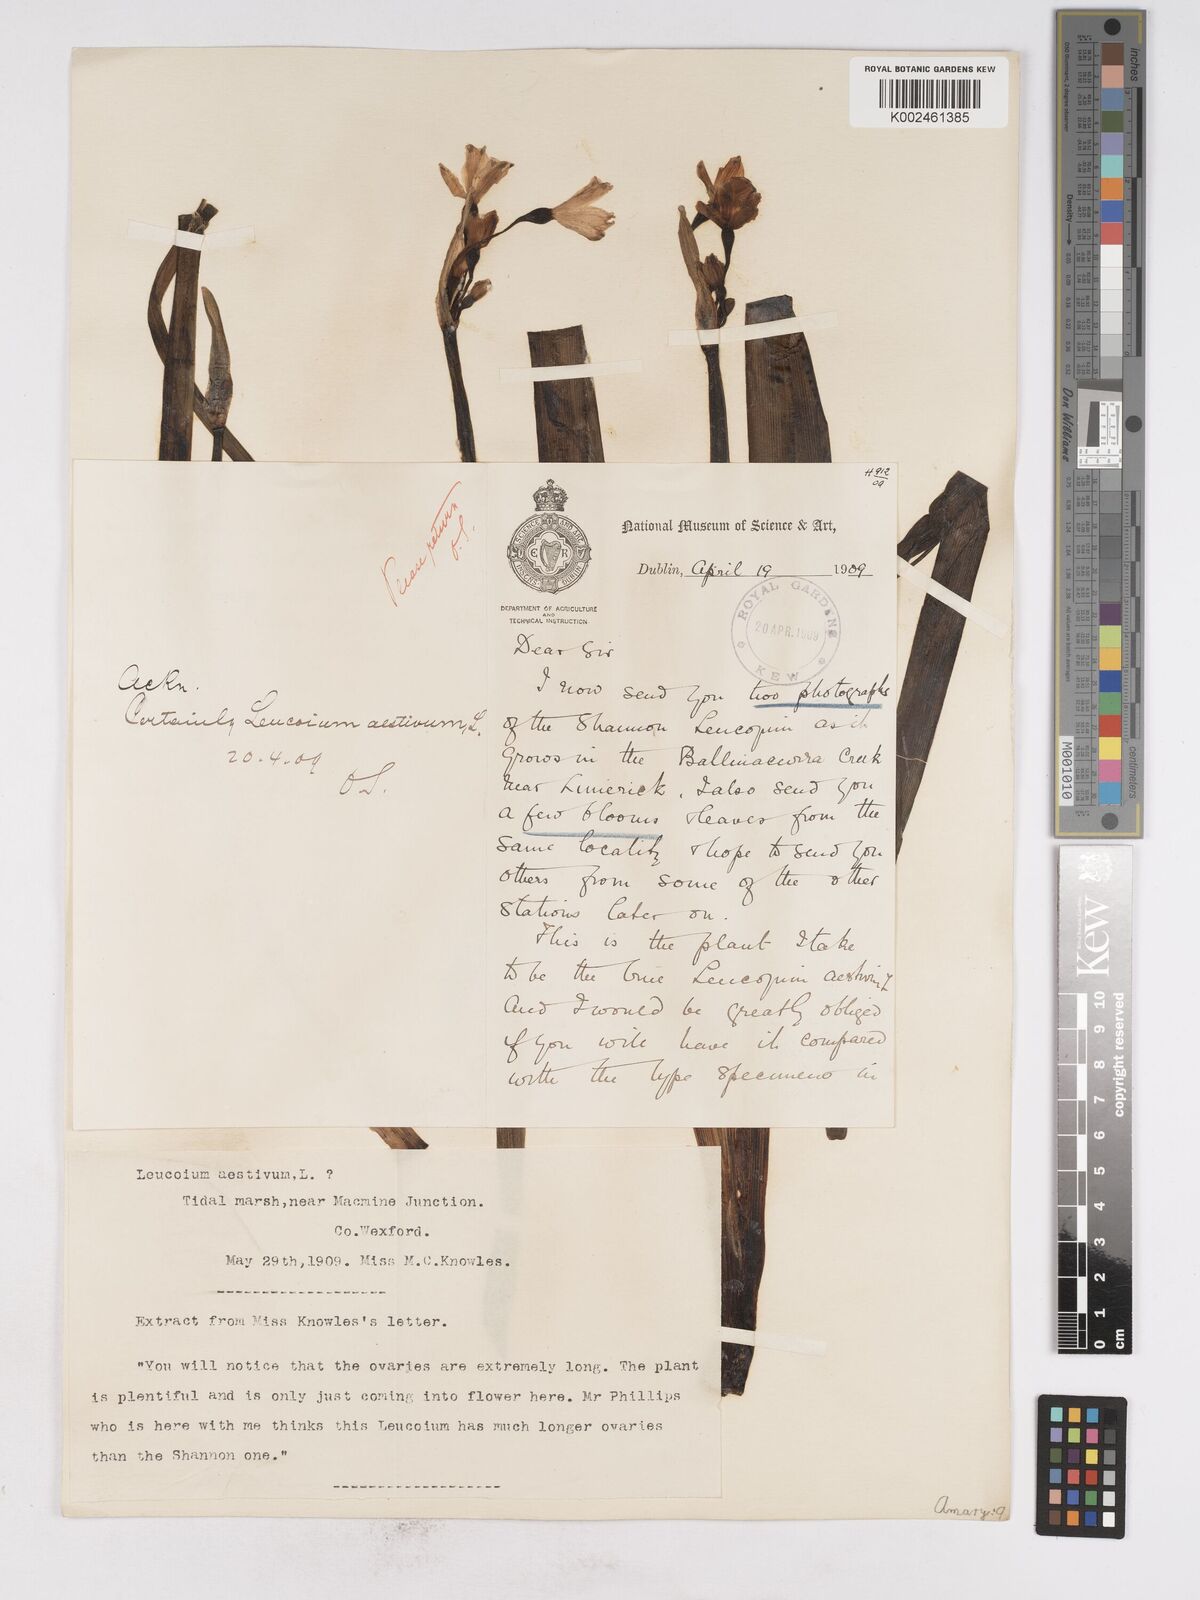 ROYAL BOTANIC GARDENS KEW
K002461385
H 912
09
Please return
O.S.
SCIENCE AND ART
INSTITUTIONS DUBLIN
E R
National Museum of Science & Art,
Dublin, April 19 1909
DEPARTMENT OF AGRICULTURE
AND
TECHNICAL INSTRUCTION.
ROYAL GARDENS
20 APR. 1909
KEW
Ackn.
Certainly Leucoium aestivum, L.
20.4.09
O.S.
Dear Sir
I now send you two photographs
of the Shannon Leucojum as it
grows in the Ballinacurra Creek
near Limerick. I also send you
a few blooms & leaves from the
same locality & hope to send you
others from some of the other
stations later on.
This is the plant I take
to be the true Leucojum aestivum L
and I would be greatly obliged
if you will have it compared
with the type specimens in
Leucoium aestivum,L. ?
Tidal marsh,near Macmine Junction.
Co.Wexford.
May 29th,1909. Miss M.C.Knowles.
-------------------
Extract from Miss Knowles's letter.
"You will notice that the ovaries are extremely long. The plant
is plentiful and is only just coming into flower here. Mr Phillips
who is here with me thinks this Leucoium has much longer ovaries
than the Shannon one."
-------------------
Amary: 9
inches
Density
Don Williams
centimetres
M001010
Kew
copyright reserved
0 1 2 3 4 5 6 7 8 9 10
cm